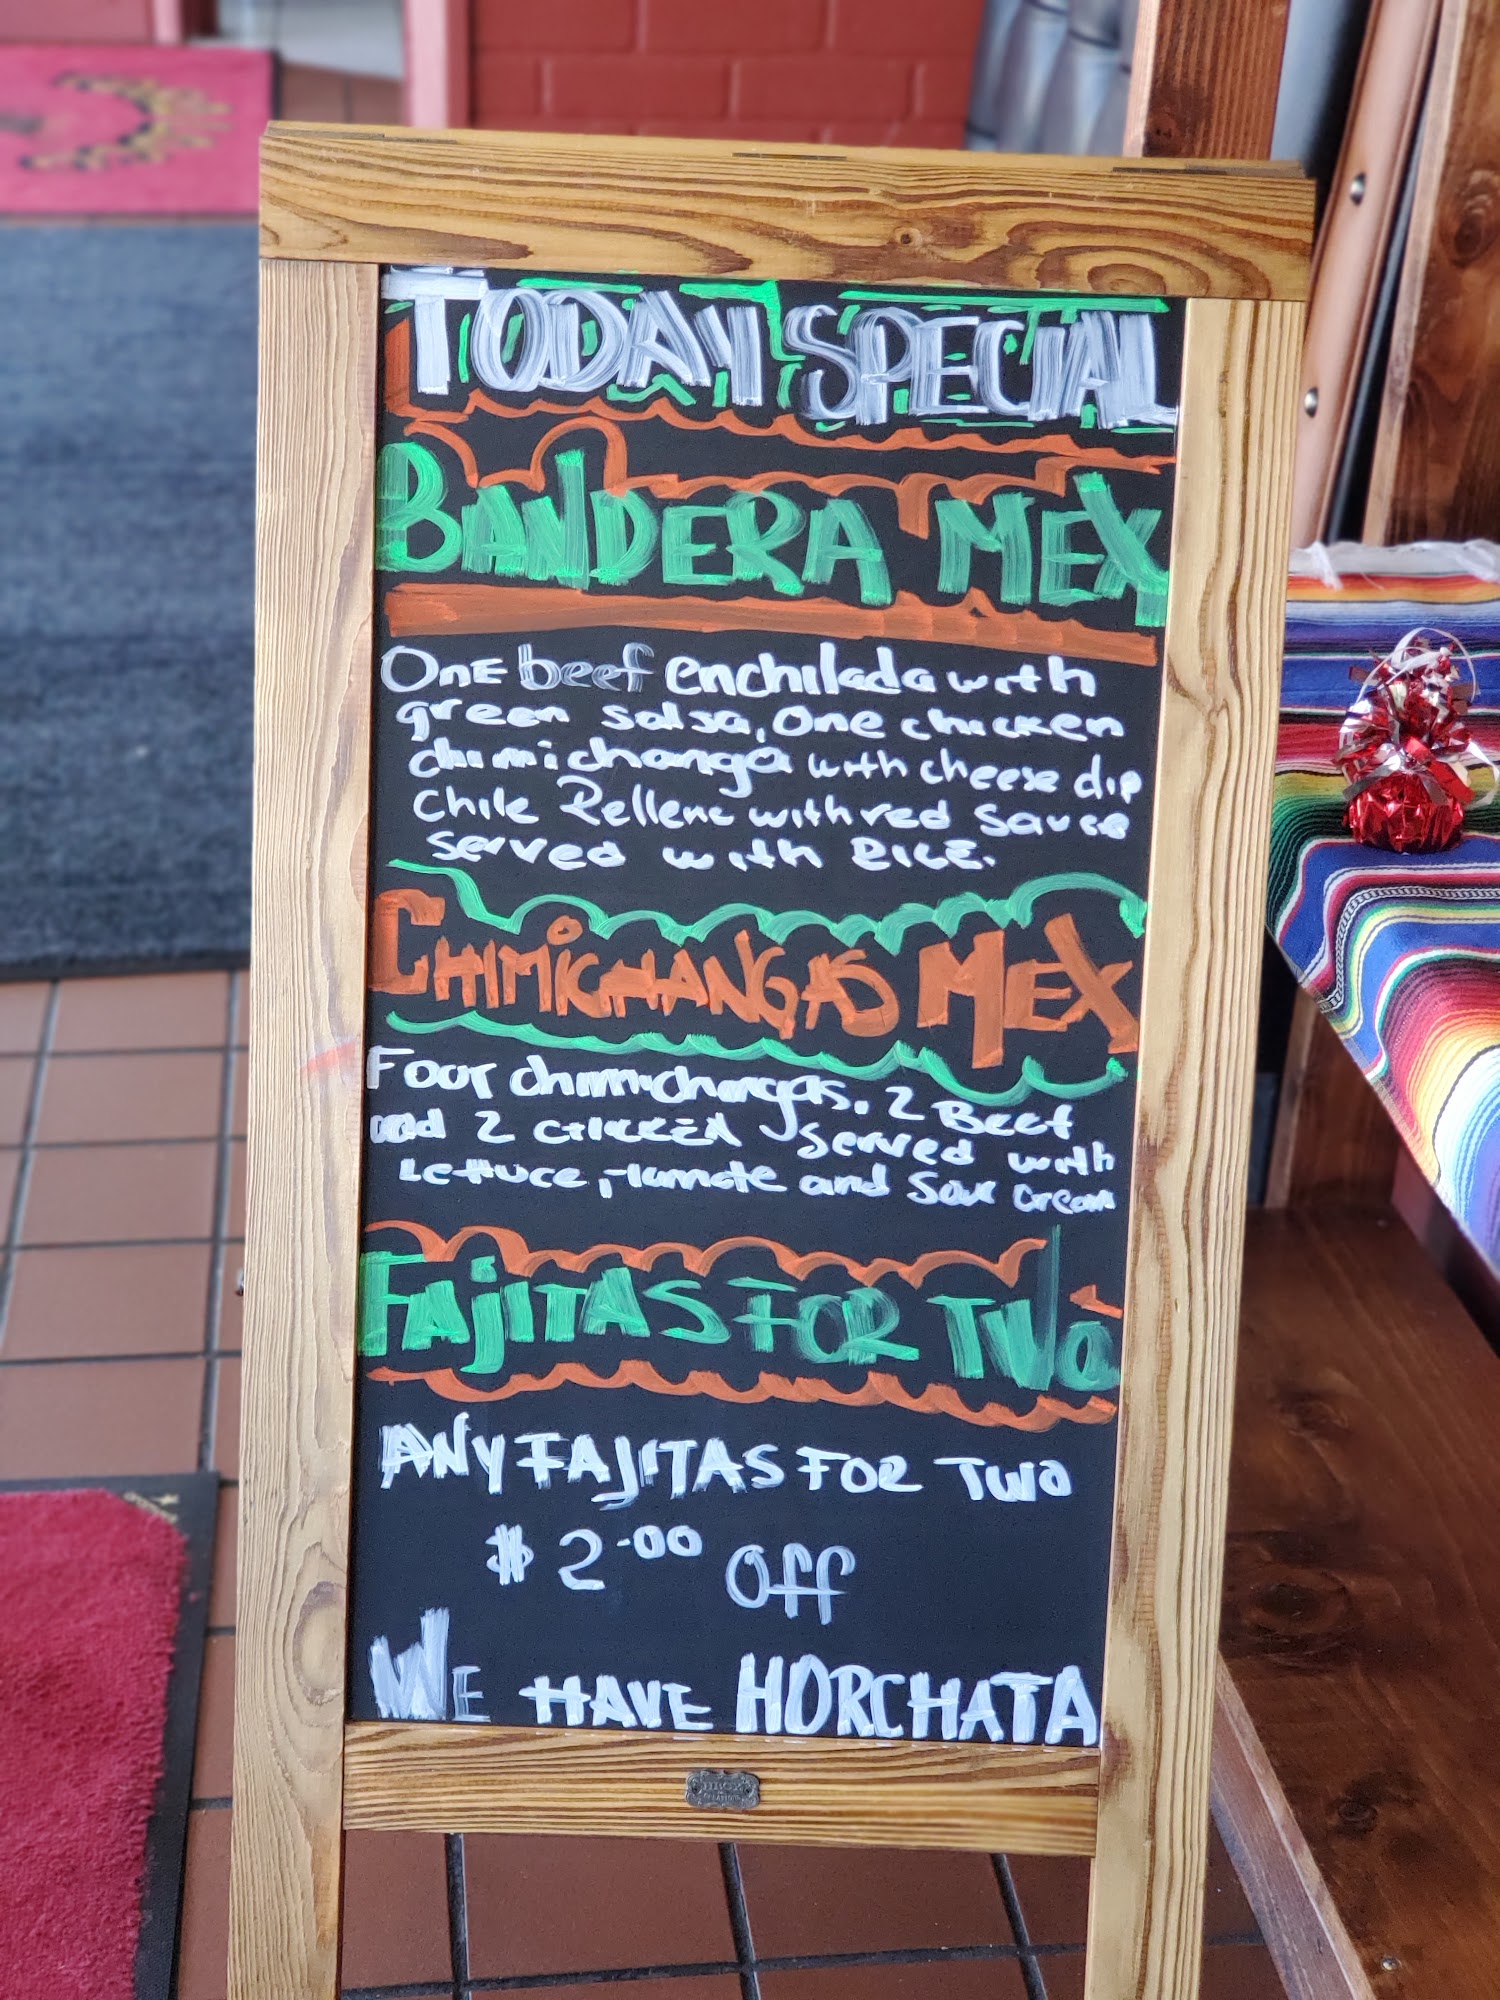 TODAY SPECIAL
BANDERA MEX
ONE beef enchilada with
green salsa, One chicken
chimichanga with cheese dip
Chile Relleno with red sauce
served with RICE.
CHIMICHANGAS MEX
FOUR chimichangas. 2 Beef
and 2 CHICKEN served with
Lettuce, tomate and Sour Cream
FAJITAS FOR TWO
ANY FAJITAS FOR TWO
$2.00 Off
WE HAVE HORCHATA